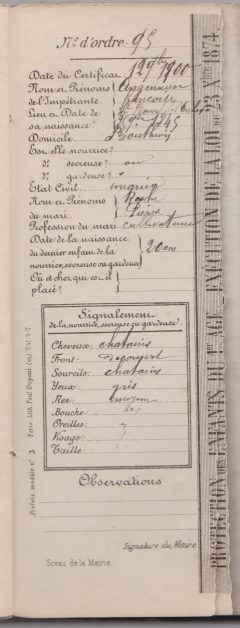 N.º d'ordre: 95
Date du Certificat 1900
Nom et Prénoms
de l'Impétrante.
Lieu et Date de
sa naissance? 1845
Domicile.
Est-elle nourrice?
d.º sevreuse? ou
d.º gardeuse?
Etat Civil. mariée
Nom et Prénoms
du mari. Pierre
Profession du mari cultivateur
Date de la naissance
du dernier enfant de la 20 ans
nourrice, sevreuse ou gardeuse
Où et chez qui est-il
placé?
Signalement
de la nourrice, sevreuse ou gardeuse.
Cheveux: chatains
Front: découvert
Sourcils: chatains
Yeux: gris
Nez: moyen
Bouche:
Oreilles:
Visage:
Taille:
Observations
Signature du Maire
Sceau de la Mairie.
Préfets modèle nº 3 Paris. Imp. Paul Dupont (Cl.)
PROTECTION DES ENFANTS DU 1er AGE EXÉCUTION DE LA LOI DU 23 Xbre 1874.